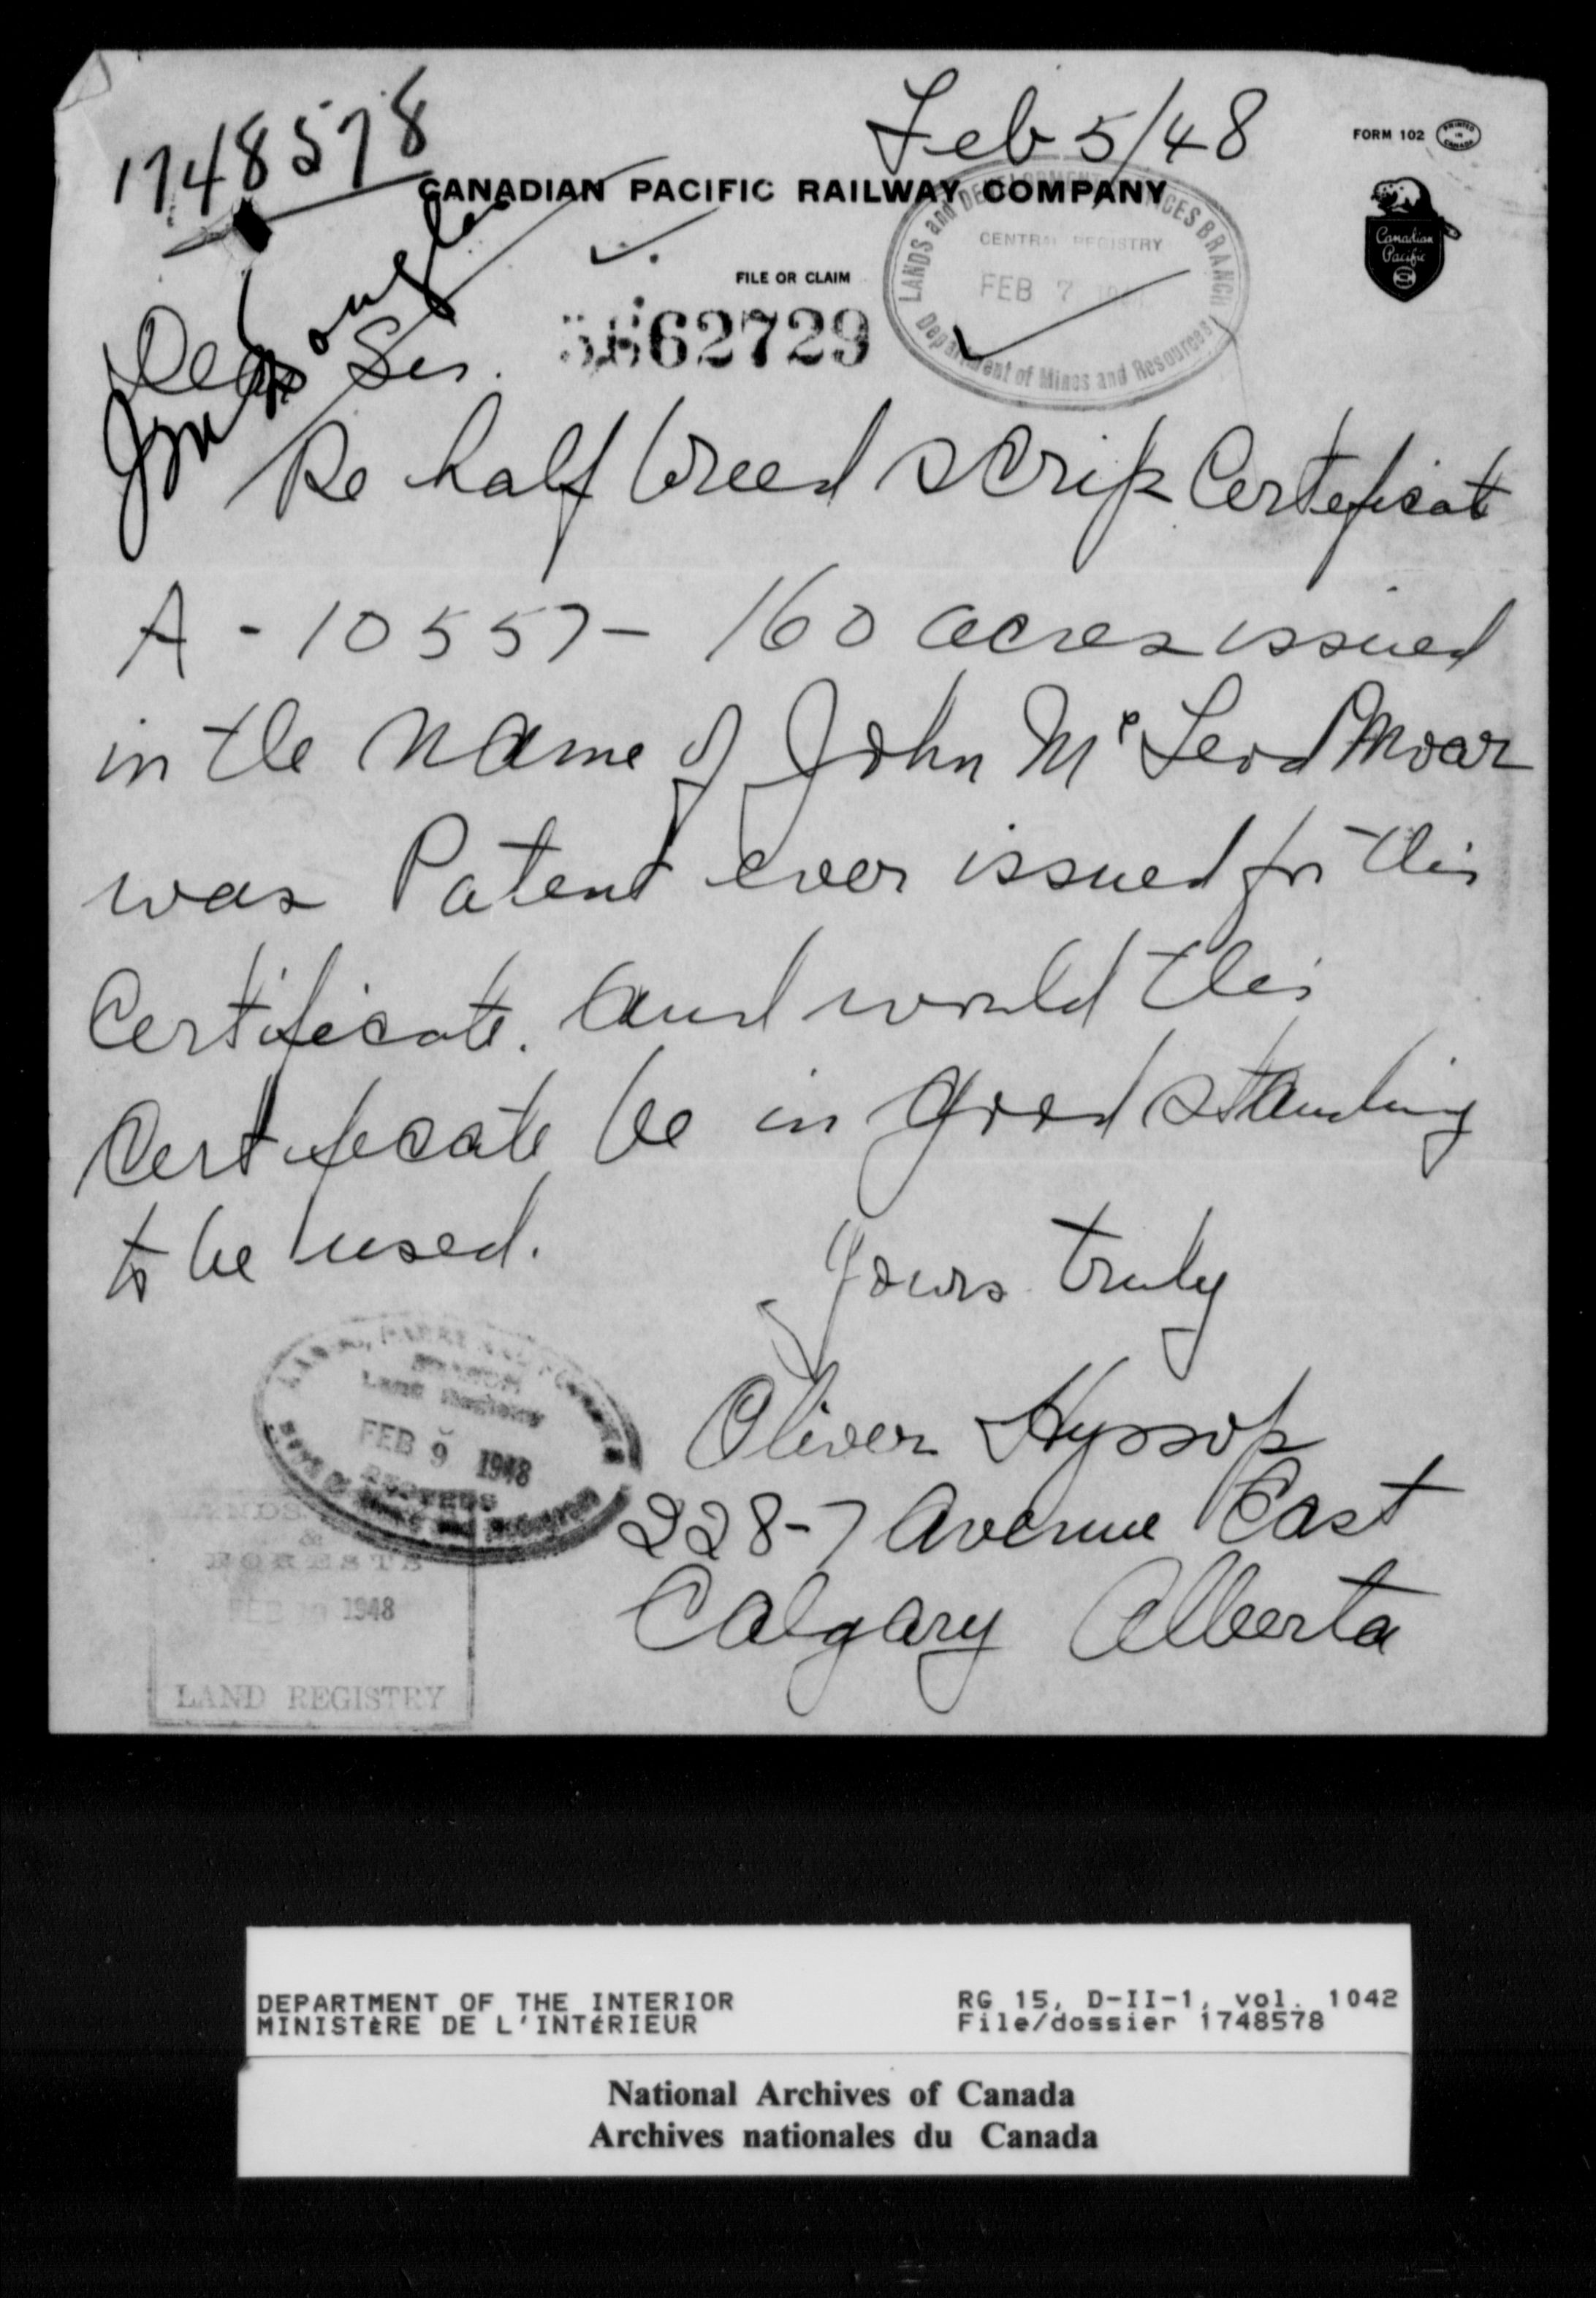 1748578
Feb 5/48
FORM 102
PRINTED IN CANADA
CANADIAN PACIFIC RAILWAY COMPANY
Canadian
Pacific
FILE OR CLAIM
62729
LANDS and DEVELOPMENT SERVICES BRANCH
CENTRAL REGISTRY
FEB 7
Department of Mines and Resources
Dear Sir.
Re half breed scrip Certeficat
A - 10557 - 160 acres issued
in the name of John Mc Leod Moar
was Patent ever issued for this
Certificate. and would this
Certificate be in good standing
to be used.
Yours truly
Oliver Hyssop
228-7 Avenue East
Calgary Alberta
FEB 9 1948
LANDS
&
FORESTS
FEB 1948
LAND REGISTRY
DEPARTMENT OF THE INTERIOR
MINISTÈRE DE L'INTÉRIEUR
RG 15, D-II-1, vol. 1042
File/dossier 1748578
National Archives of Canada
Archives nationales du Canada